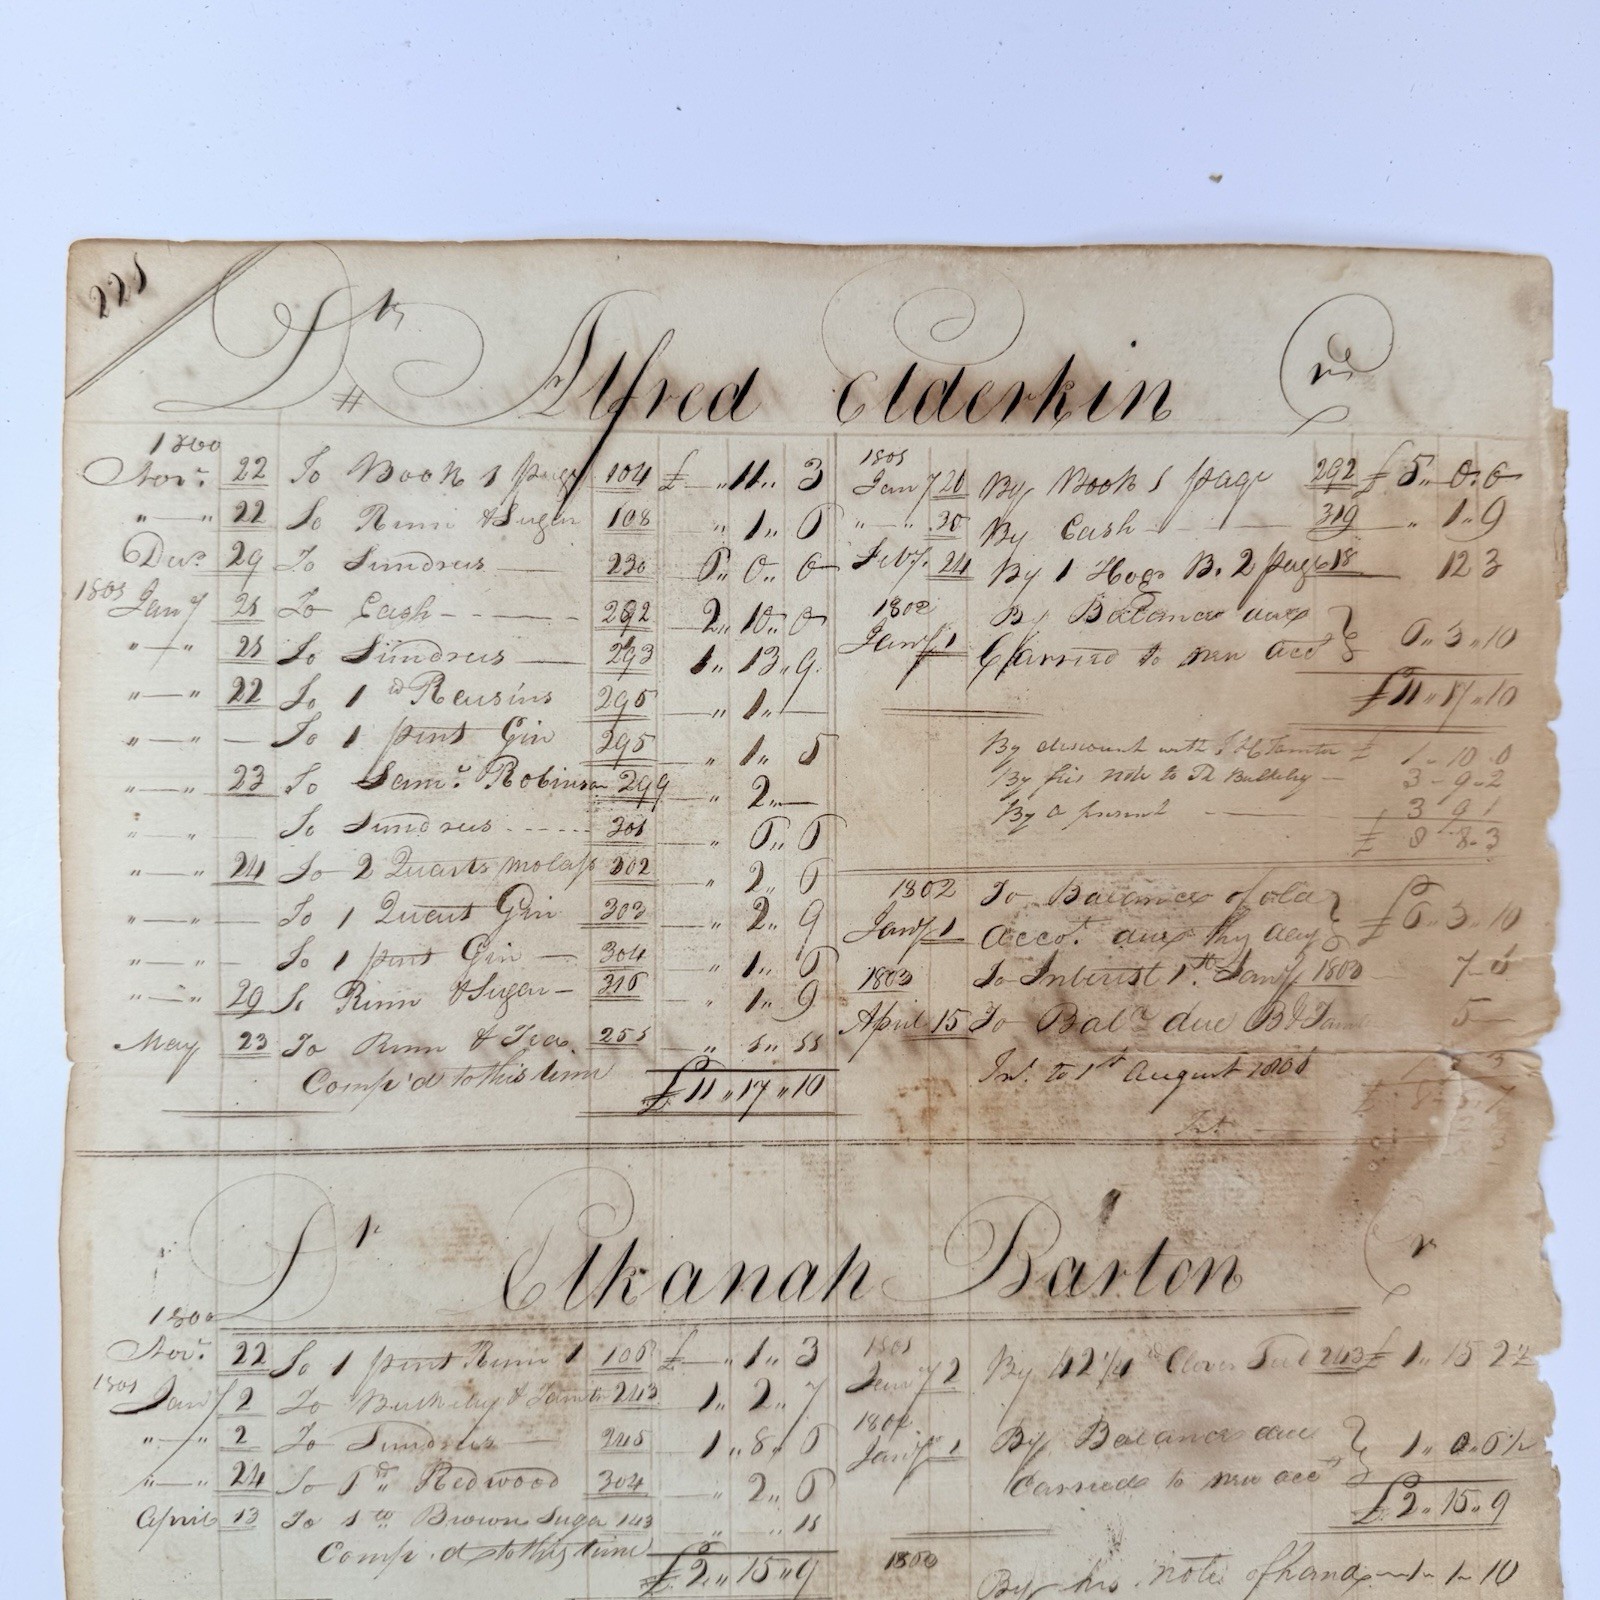 221
Dr Alfred Elderkin Cr
1800
Novr 22 To Book 1 page 104 £ " 11 " 3
" — " 22 To Rum & Sugar 108 " 1 " 6
Decr 29 To Sundries 230 6 " 0 " 0
1801 Jany 21 To Cash 292 2 " 10 " 0
" — " 21 To Sundries 293 1 " 13 " 9
" — " 22 To 1 lb Reusins 295 " 1 " —
" — " — To 1 pint Gin 295 " 1 "
" — " 23 To Saml Robinson 299 " 2 " —
" — To Sundries 301 6 " 6
" — " 24 To 2 Quarts molass 302 " 2 " 6
" — " — To 1 Quart Gin 303 " 2 " 9
" — " — To 1 pint Gin 304 " 1 " 6
" — " 29 To Rum & Sugar 316 " 1 " 9
May 23 To Rum & Tea 251 " 1 " 11
Comp'd to this time £ 11 " 17 " 10
1801
Jany 20 By Book 1 page 292 £ 5 " 0 " 0
" — " 30 By Cash 319 " 1 " 9
Feby 24 By 1 Hog B. 2 page 18 12 3
1802 By Balance due
Jany 1 Carried to new acct 6 " 3 " 10
£ 11 " 17 " 10
By discount with £ 1 - 10 - 0
By his note to Bulkeley 3 - 9 - 2
By a present 3 9 1
£ 8 8 - 3
1802 To Balance of old
Jany 1 accot due this day £ 6 " 3 " 10
1803 To Interest 1st Jany 7 - 6
April 15 To Balce due 5 —
Int. to 1st August
Dr Elkanah Barton Cr
1800
Novr 22 To 1 pint Rum £ " 1 " 3
1801 Jany 2 To Bulkeley & 243 1 " 2 " 7
" — " 2 To Sundries 245 1 " 8 " 6
" — " 24 To Redwood 304 " 2 " 6
April 13 To 1 lb Brown Suga 143 " " 11
Comp'd to this time £ 2 " 15 " 9
1801
Jany 2 By 42 1/4 lb Clover 243 £ 1 " 15 2 1/2
1802
Jany 1 By Balance due
Carried to new acct 1 " 0 " 6 1/2
£ 2 " 15 " 9
By his note of hand 1 - 1 - 10